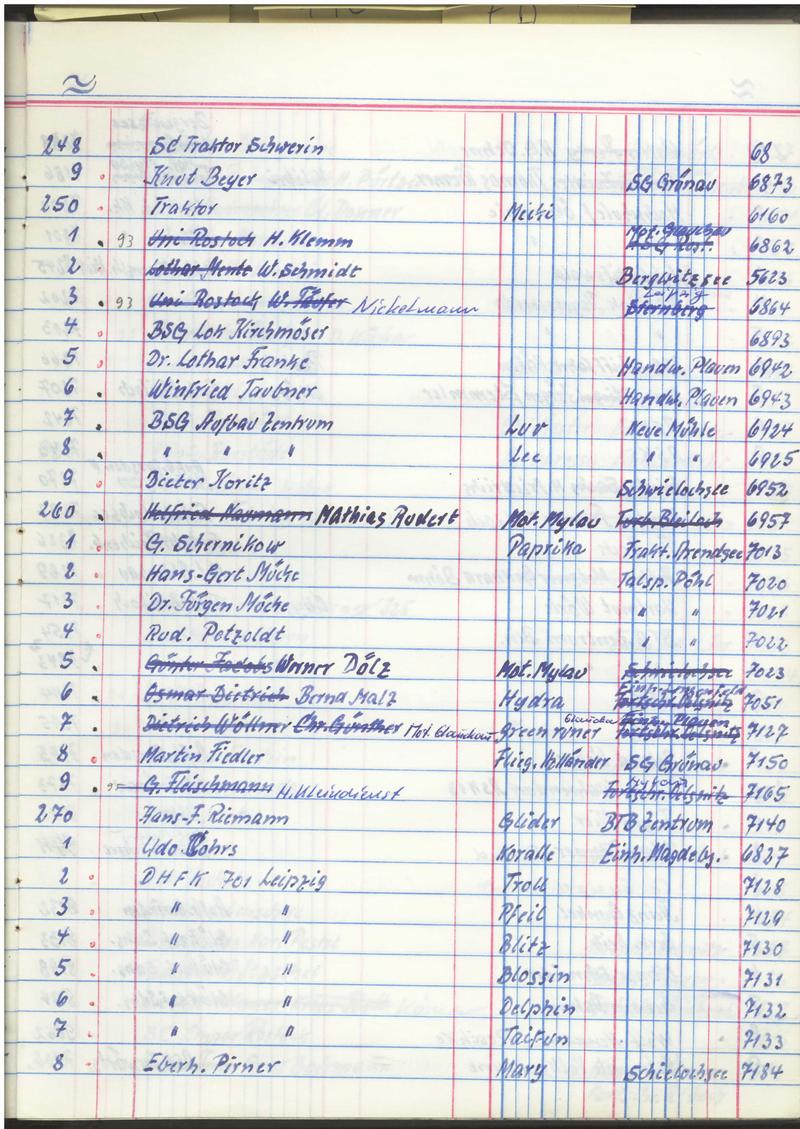 248 Sc Traktor Schwerin 68
9 Knut Beyer SG Grünau 6873
250 Traktor Mecki 6160
1 93 Uni Rostock H. Klemm Mot. H S G Rost. 6862
2 Lothar Mente W. Schmidt Bergwitzsee 5623
3 93 Uni Rostock W. Nickelmann Leipzig Sternberg 6864
4 BSG Lok Kirchmöser 6893
5 Dr. Lothar Franke Handw. Plauen 6942
6 Winfried Taubner Handw. Plauen 6943
7 BSG Aufbau Zentrum Luv Neue Mühle 6924
8 " " " Lee " " 6925
9 Dieter Koritz Schwielochsee 6952
260 Helfried Naumann Mathias Rudert Mot. Mylau 6957
1 G. Schernikow Paprika Trakt. Arendsee 7013
2 Hans-Gert Mücke Talsp. Pöhl 7020
3 Dr. Jürgen Mücke " " 7021
4 Rud. Petzoldt " " 7022
5 Günter Jacobs Werner Dölz Mot. Mylau Schwielochsee 7023
6 Osmar Dietrich Bernd Malz Hydra Fortschr. Oelsnitz 7051
7 Dietrich Wöllner Chr. Günther Mot. Glauchau Greenryner Glauchau Plauen Fortschr. Oelsnitz 7127
8 Martin Fiedler Flieg. Holländer SG Grünau 7150
9 95 G. Fleischmann H. Kleindienst Mylau Fortschr. Oelsnitz 7165
270 Hans-F. Riemann Glider BTB Zentrum 7140
1 Udo Cohrs Koralle Einh. Magdebg. 6827
2 DHFK 701 Leipzig Troll 7128
3 " " Pfeil 7129
4 " " Blitz 7130
5 " " Blossin 7131
6 " " Delphin 7132
7 " " Taifun 7133
8 Eberh. Pirner Mary Schielochsee 7184